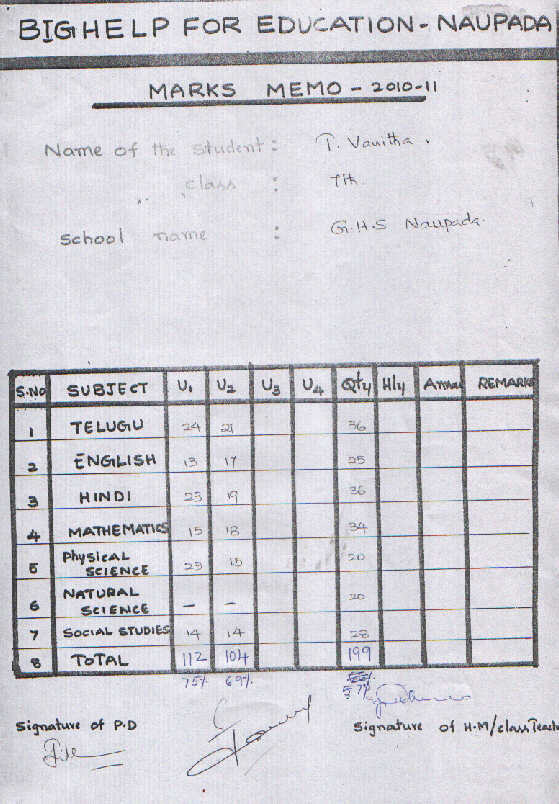 BIGHELP FOR EDUCATION - NAUPADA
MARKS MEMO - 2010-11
Name of the student : T. Vanitha .
class : 7th
School name : G.H.S Naupada.
S.No SUBJECT U1 U2 U3 U4 Qty Hly Annual REMARKS
1 TELUGU 24 21 36
2 ENGLISH 13 17 25
3 HINDI 23 19 36
4 MATHEMATICS 15 18 34
5 Physical SCIENCE 23 15 20
6 NATURAL SCIENCE - - 20
7 SOCIAL STUDIES 14 14 28
8 TOTAL 112 104 199
75% 69% 57%
Signature of P.D Signature of H.M/class Teach